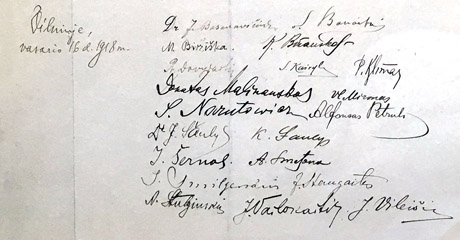 Vilniuje,
vasario 16 d. 1918 m.
Dr. J. Basanavičius S. Banaitis
M. Biržiška K. Bizauskas
Pr. Dovydaitis S. Kairys P. Klimas
Donatas Malinauskas Vl. Mironas
S. Narutowicz Alfonsas Petrulis
Dr J. Šaulys K. Šaulys
J. Šernas A. Smetona
J. Smilgevičius J. Staugaitis
A. Stulginskis J. Vailokaitis J. Vileišis